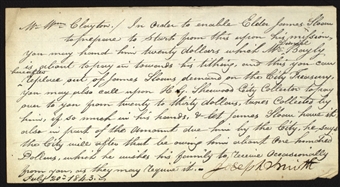 Mr Wm Clayton / In order to enable Elder James Sloan
to prepare to start from this upon his mission,
you may hand him twenty dollars which Mr Bayly
is about to pay in towards his tithing, and this you can
replace out of James Sloans demand on the City Treasury,
you may also call upon H. G. Sherwood City Collector to pay
over to you from twenty to thirty dollars, taxes Collected by
him, if so much in his hands, & let James Sloan have it,
also in part of the Amount due him by the City, he says
the City will after that be owing him about One hundred
Dollars, which he wishes his family to receive Occasionally
from you, as they may require it.
July 20th 1843. Joseph Smith